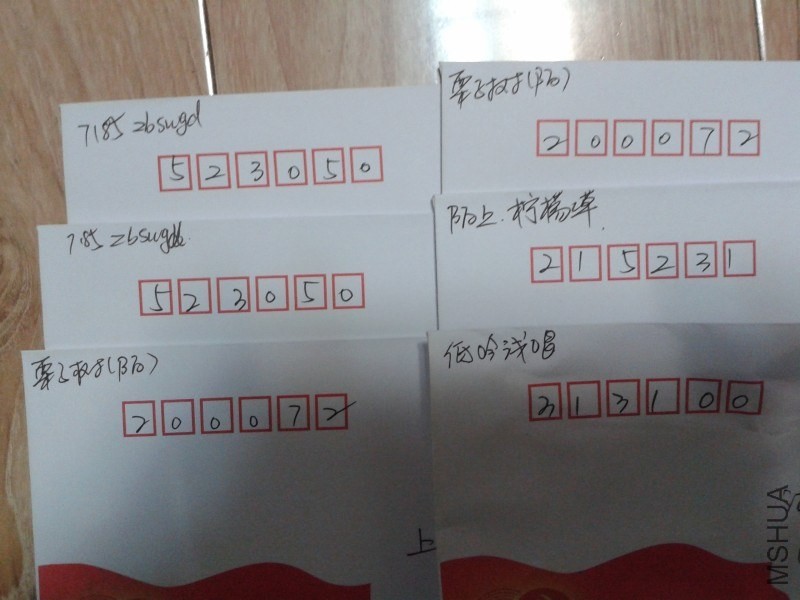 7185 zbswgd
523050
7185 zbswgd
523050
栗子树(陌)
200072
栗子树(陌)
200072
陌上.柠檬草.
215231
低吟浅唱
313100
上
MSHUA